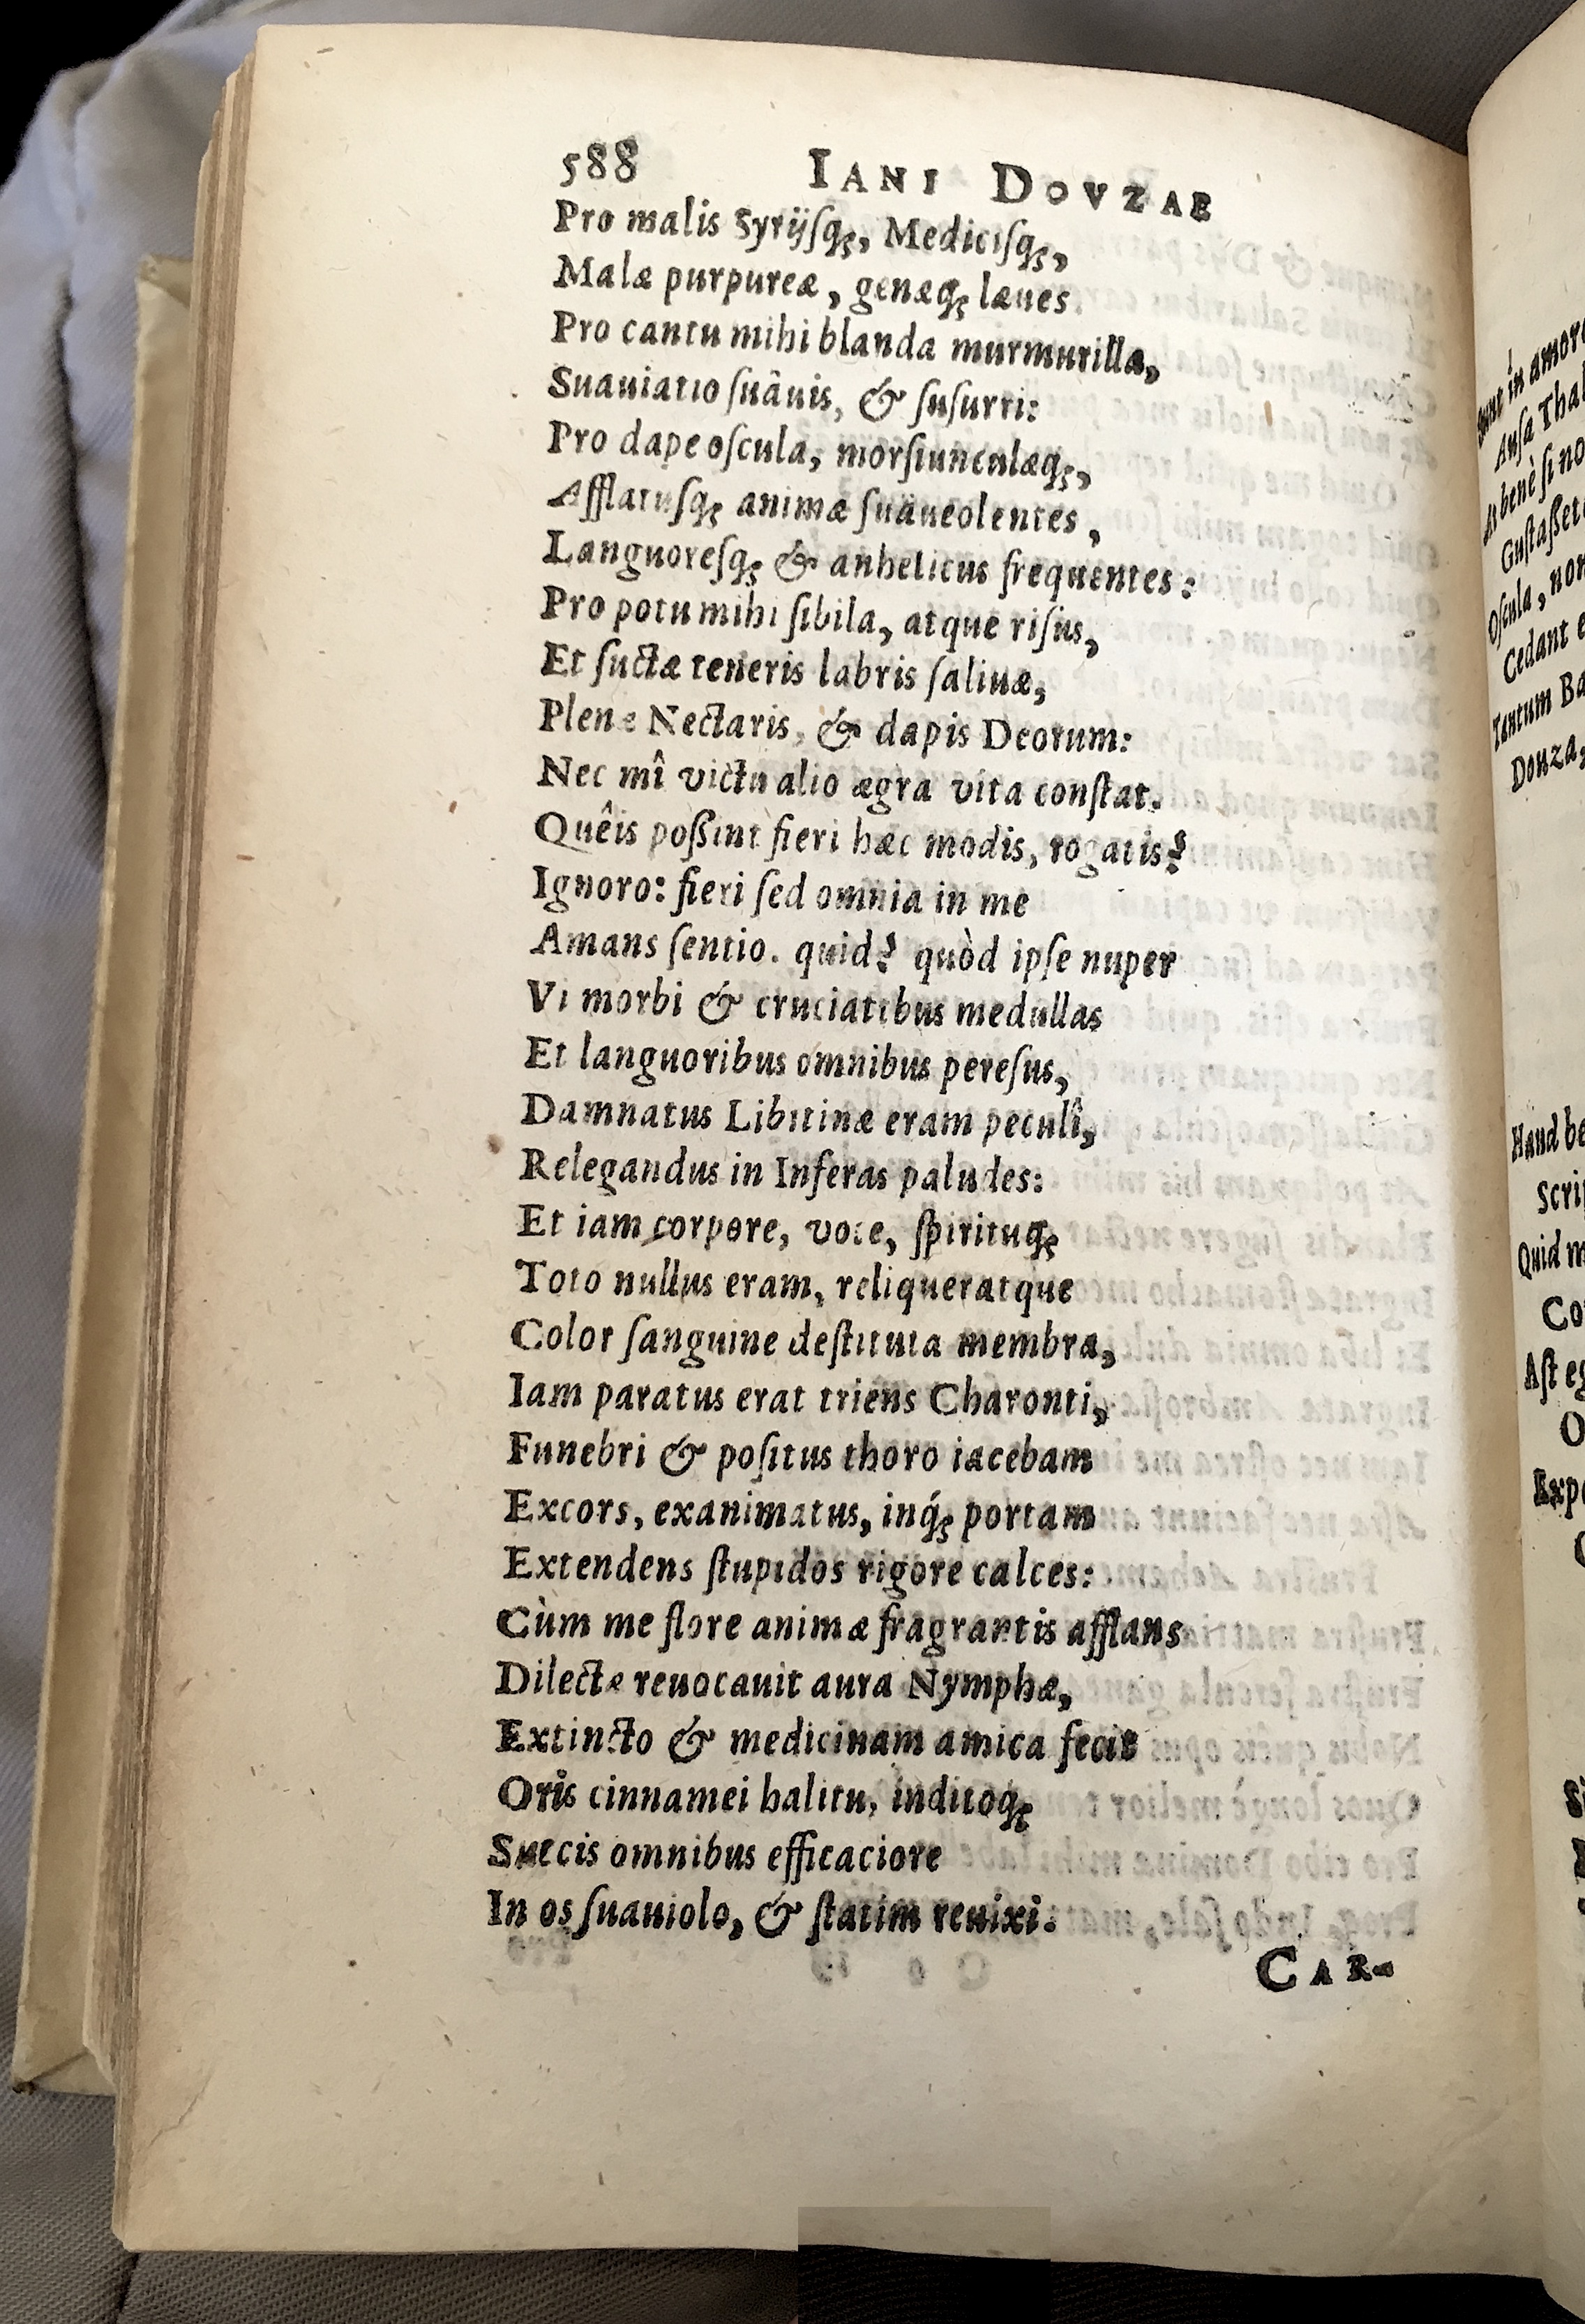 588 IANI DOVZAE
Pro malis Syrijſq́ꝫ, Mediciſq́ꝫ,
Malæ purpureæ, genæq́ꝫ læues.
Pro cantu mihi blanda murmurilla,
Suauiatio ſuâuis, & ſuſurri:
Pro dape oſcula, morſiunculæq́ꝫ,
Afflatuſq́ꝫ animæ ſuaueolentes,
Languoreſq́ꝫ & anhelitus frequentes:
Pro potu mihi ſibila, atque riſus,
Et ſuctæ teneris labris ſaliuæ,
Plenæ Nectaris, & dapis Deorum:
Nec mî victu alio ægra vita conſtat.
Quêis poßint fieri hæc modis, rogatis?
Ignoro: fieri ſed omnia in me
Amans ſentio. quid? quòd ipſe nuper
Vi morbi & cruciatibus medullas
Et languoribus omnibus pereſus,
Damnatus Libitinæ eram peculî,
Relegandus in Inferas paludes:
Et iam corpore, voce, ſpirituq́ꝫ
Toto nullus eram, reliqueratque
Color ſanguine deſtituta membra,
Iam paratus erat triens Charonti,
Funebri & poſitus thoro iacebam
Excors, exanimatus, inq́ꝫ portam
Extendens ſtupidos rigore calces:
Cùm me flore animæ fragrantis afflans
Dilectæ reuocauit aura Nymphæ,
Extincto & medicinam amica fecit
Oris cinnamei halitu, inditoq́ꝫ
Succis omnibus efficaciore
In os ſuauiolo, & ſtatim reuixi.
CAR-
Sunt in amore
Auſa Thal
At benè ſi no
Guſtaßet
Oſcula, non
Cedant e
Tantum Ba
Douza,
Haud be
Scri
Quid m
Co
Aſt eg
O
Expe